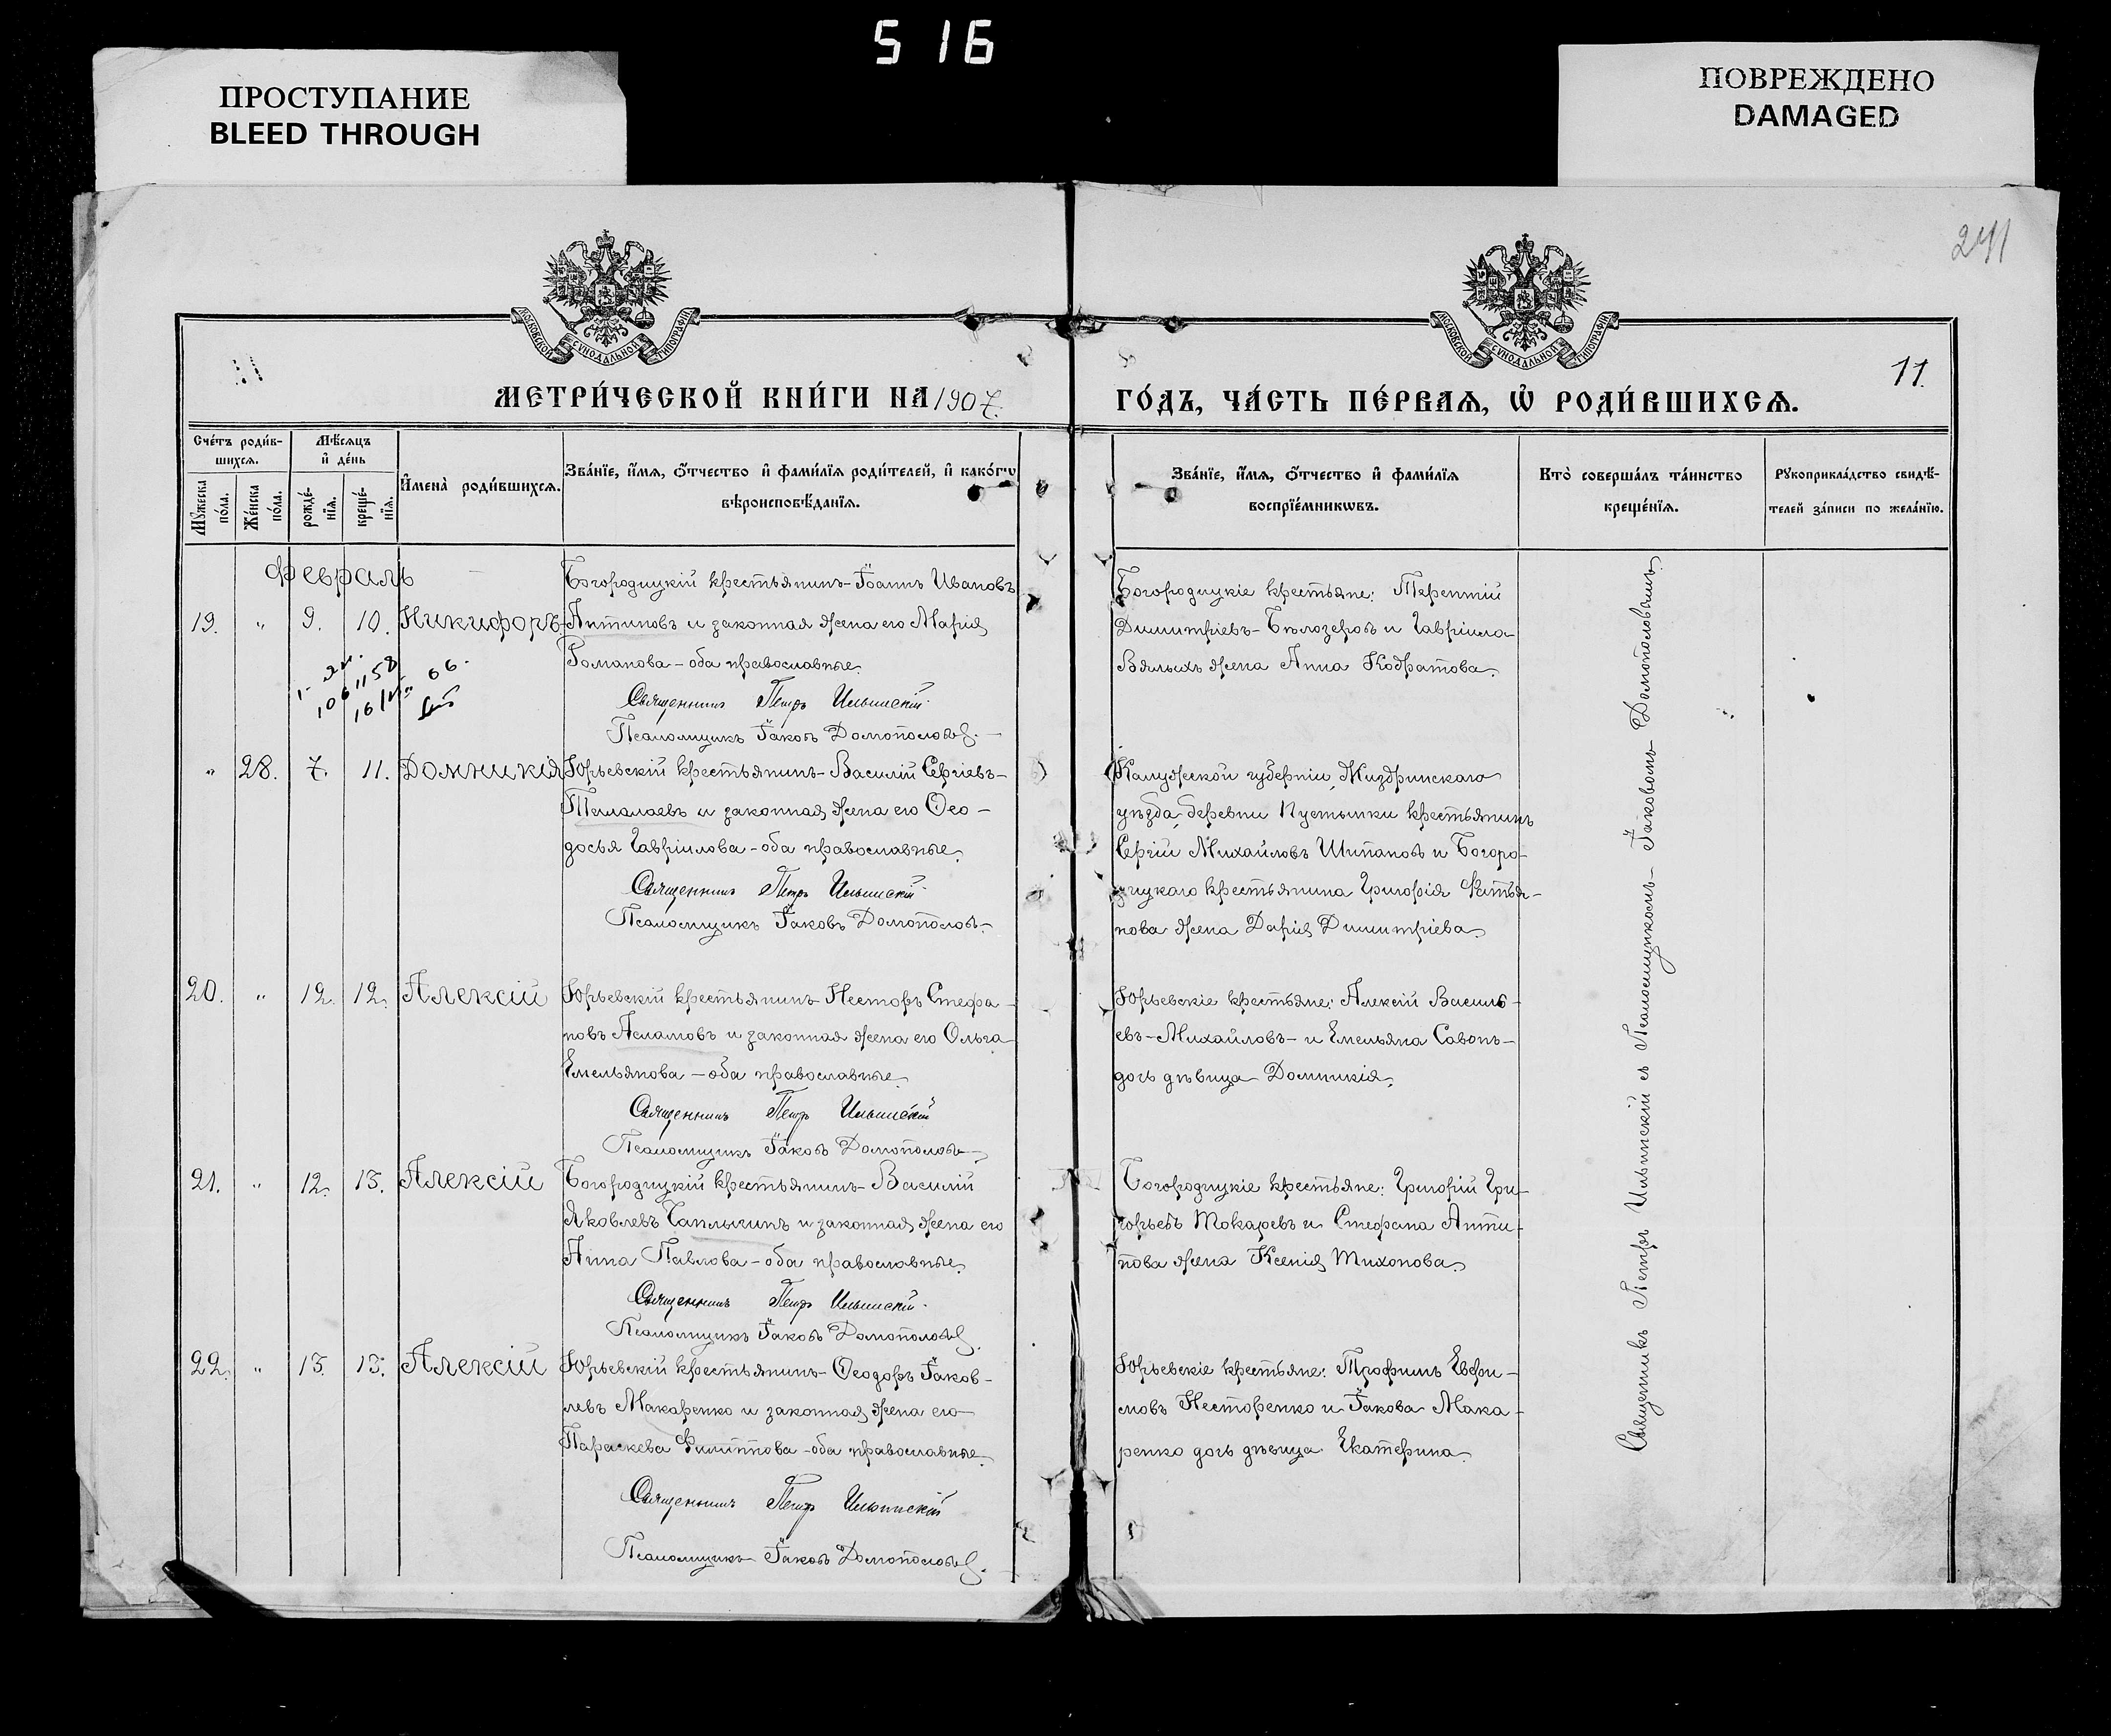 516
ПРОСТУПАНИЕ
BLEED THROUGH
ПОВРЕЖДЕНО
DAMAGED
241
МОСКОВСКОЙ СѴНОДАЛЬНОЙ ТИПОГРАФІИ
МОСКОВСКОЙ СѴНОДАЛЬНОЙ ТИПОГРАФІИ
11.
МЕТРИ́ЧЕСКОЙ КНИ́ГИ НА 1907.
ГО́ДЪ, ЧА́СТЬ ПЕ́РВАѦ, Ѽ РОДИ́ВШИХСѦ.
Сче́тъ роди́в-
шихсѧ.
Мѣ́сѧцъ
и҆ де́нь
Мꙋ́жеска по́ла.
Же́нска по́ла.
рожде́-нїѧ.
креще́-нїѧ.
И҆мена̀ роди́вшихсѧ.
Зва́нїе, и҆́мѧ, ѻ҆́тчество и҆ фами́лїѧ роди́телей, и҆ како́гѡ
вѣроисповѣ́данїѧ.
Зва́нїе, и҆́мѧ, ѻ҆́тчество и҆ фами́лїѧ
воспрїе́мникѡвъ.
Кто̀ соверша́лъ та́инство
креще́нїѧ.
Рꙋкоприкла́дство свидѣ́-
телей за́писи по жела́нїю.
Февраль
19. " 9. 10. Никифоръ
Богородицкій крестьянинъ Іоаннъ Ивановъ
Антиповъ и законная жена его Марія
Романова – оба православные.
Священникъ Петръ Ильинскій
Псаломщикъ Іаковъ Домополовъ.
Богородицкіе крестьяне: Терентій
Димитріевъ Бѣлозеровъ и Гавріила
Вялыхъ жена Анна Кодратова.
106 1158 66.
" 28. 7. 11. Домникія
Юрьевскій крестьянинъ Василій Сергіевъ
и законная жена его Ѳео-
досья Гавріилова – оба православные.
Священникъ Петръ Ильинскій
Псаломщикъ Іаковъ Домополовъ
Калужской губерніи, Жиздринскаго
уѣзда, деревни Пустынки крестьянинъ
Сергій Михайловъ Шипановъ и Богоро-
дицкаго крестьянина Григорія Фатья-
нова жена Дарія Димитріева.
20. " 12. 12. Алексій
Юрьевскій крестьянинъ Несторъ Стефа-
новъ Асламовъ и законная жена его Ольга
Емельянова – оба православные.
Священникъ Петръ Ильинскій
Псаломщикъ Іаковъ Домополовъ
Юрьевскіе крестьяне: Алексій Василь-
евъ Михайловъ и Емельяна Савонъ
дочь дѣвица Домникія.
21. " 12. 13. Алексій
Богородицкій крестьянинъ Василій
Яковлевъ Чаплыгинъ и законная жена его
Анна Павлова – оба православные.
Священникъ Петръ Ильинскій
Псаломщикъ Іаковъ Домополовъ.
Богородицкіе крестьяне: Григорій Гри-
горьевъ Токаревъ и Стефана Анти-
пова жена Ксенія Тихонова.
22. " 13. 13. Алексій
Юрьевскій крестьянинъ Ѳеодоръ Іаков-
левъ Макаренко и законная жена его
Параскева Филиппова – оба православные.
Священникъ Петръ Ильинскій
Псаломщикъ Іаковъ Домополовъ.
Юрьевскіе крестьяне: Трофимъ Евфи-
мовъ Несторенко и Іакова Мака-
ренко дочь дѣвица Екатерина.
Священникъ Петръ Ильинскій съ Псаломщикомъ Іаковомъ Домополовымъ.